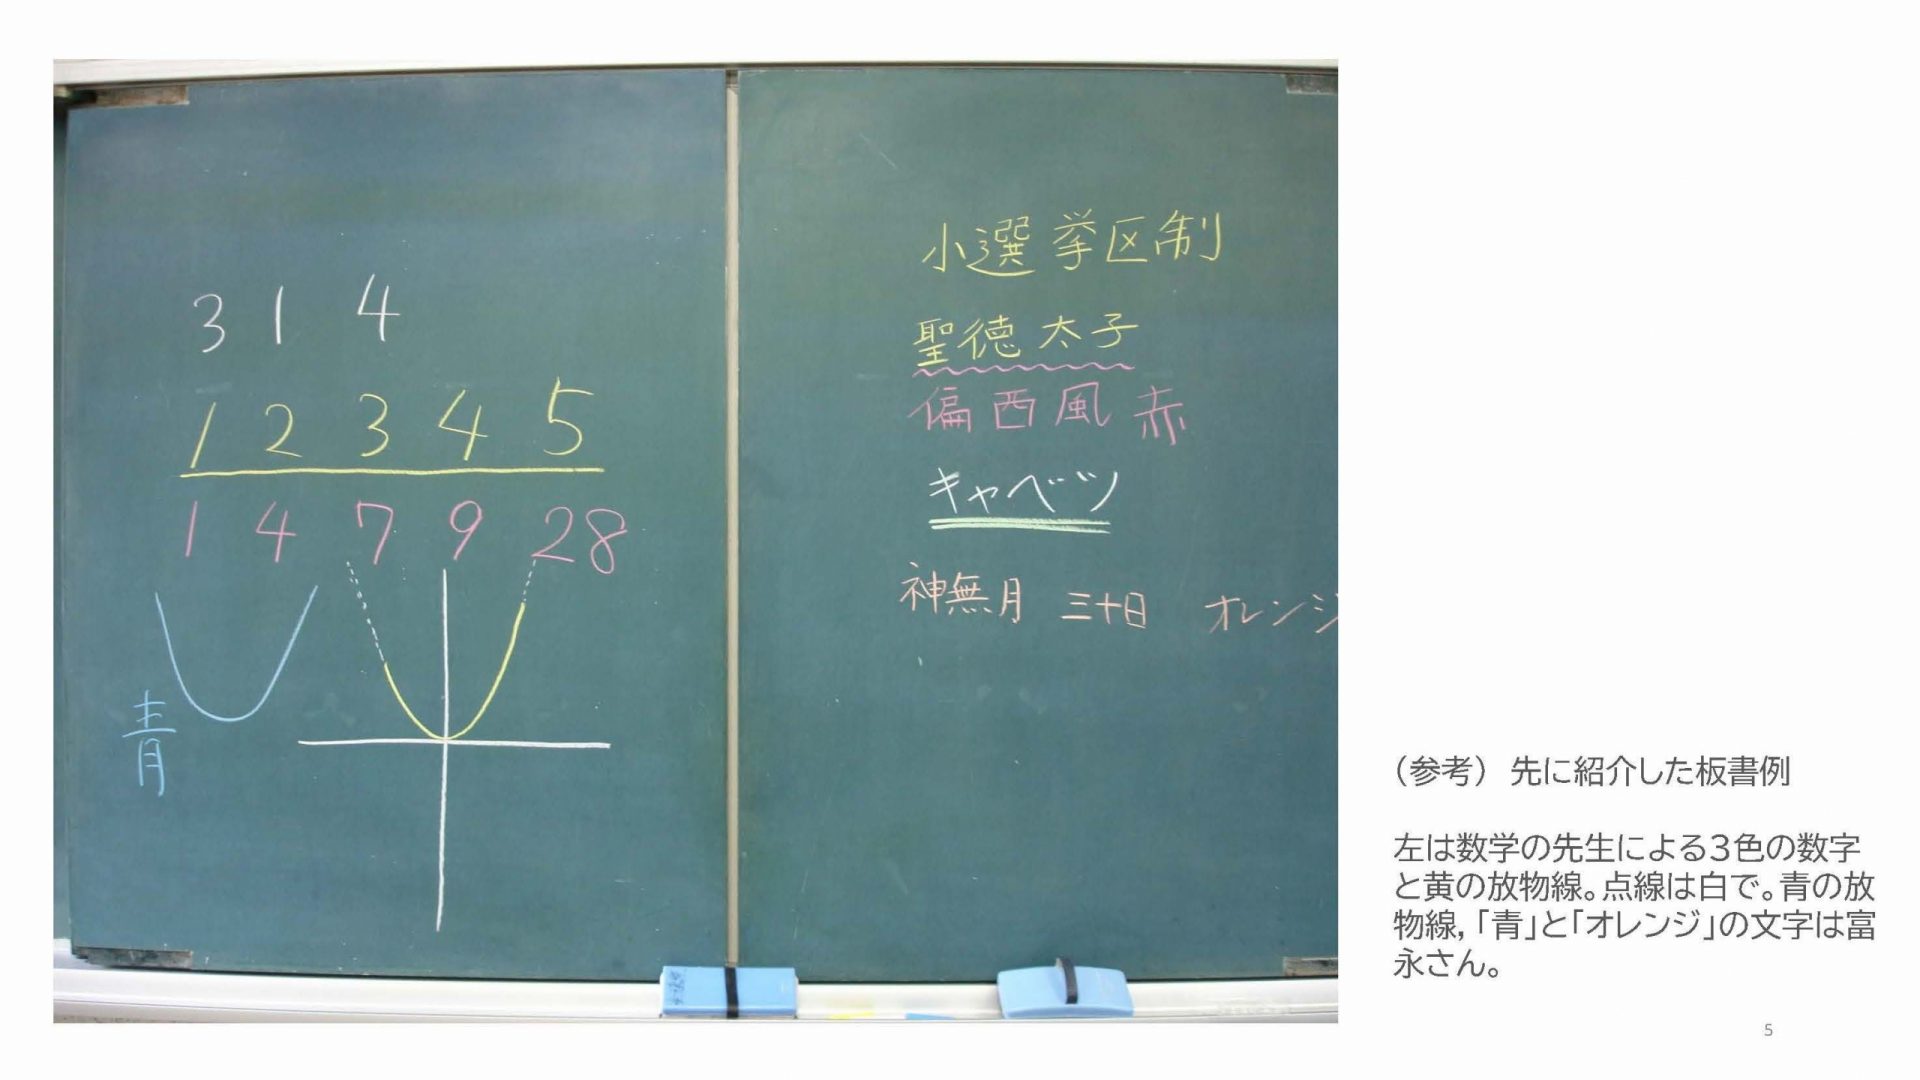 3 1 4
1 2 3 4 5
1 4 7 9 28
青
小選挙区制
聖徳太子
偏西風 赤
キャベツ
神無月 三十日 オレンジ
（参考） 先に紹介した板書例
左は数学の先生による３色の数字
と黄の放物線。点線は白で。青の放
物線，「青」と「オレンジ」の文字は富
永さん。
5